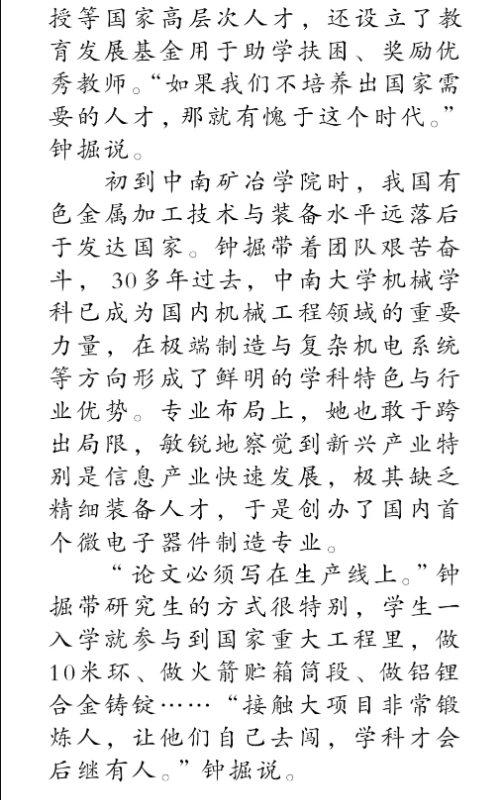 授等国家高层次人才，还设立了教
育发展基金用于助学扶困、奖励优
秀教师。“如果我们不培养出国家需
要的人才，那就有愧于这个时代。”
钟掘说。
初到中南矿冶学院时，我国有
色金属加工技术与装备水平远落后
于发达国家。钟掘带着团队艰苦奋
斗，30多年过去，中南大学机械学
科已成为国内机械工程领域的重要
力量，在极端制造与复杂机电系统
等方向形成了鲜明的学科特色与行
业优势。专业布局上，她也敢于跨
出局限，敏锐地察觉到新兴产业特
别是信息产业快速发展，极其缺乏
精细装备人才，于是创办了国内首
个微电子器件制造专业。
“论文必须写在生产线上。”钟
掘带研究生的方式很特别，学生一
入学就参与到国家重大工程里，做
10米环、做火箭贮箱筒段、做铝锂
合金铸锭……“接触大项目非常锻
炼人，让他们自己去闯，学科才会
后继有人。”钟掘说。